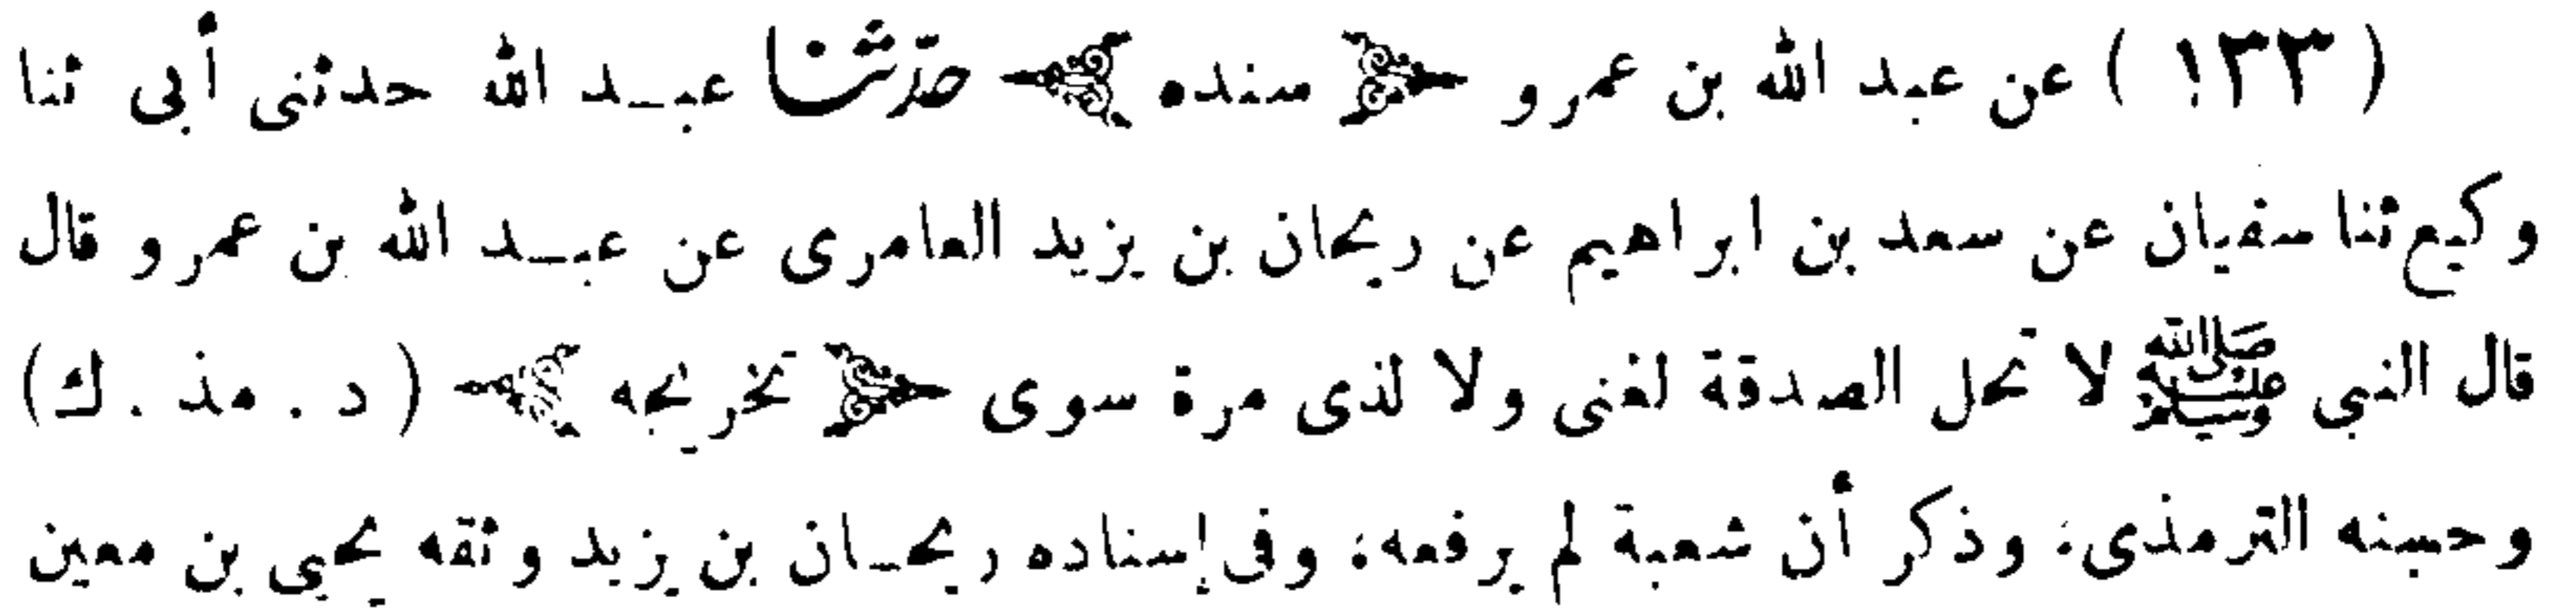 (١٣٣) عن عبد الله بن عمرو ﴿ سنده ﴾ حدّثنا عبد الله حدثنى أبى ثنا
وكيع ثنا سفيان عن سعد بن ابراهيم عن ريحان بن يزيد العامرى عن عبد الله بن عمرو قال
قال النبى ﷺ لا تحل الصدقة لغنى ولا لذى مرة سوى ﴿ تخريجه ﴾ (د . مذ . ك)
وحسنه الترمذى، وذكر أن شعبة لم يرفعه، وفى إسناده ريحان بن يزيد وثقه يحيى بن معين